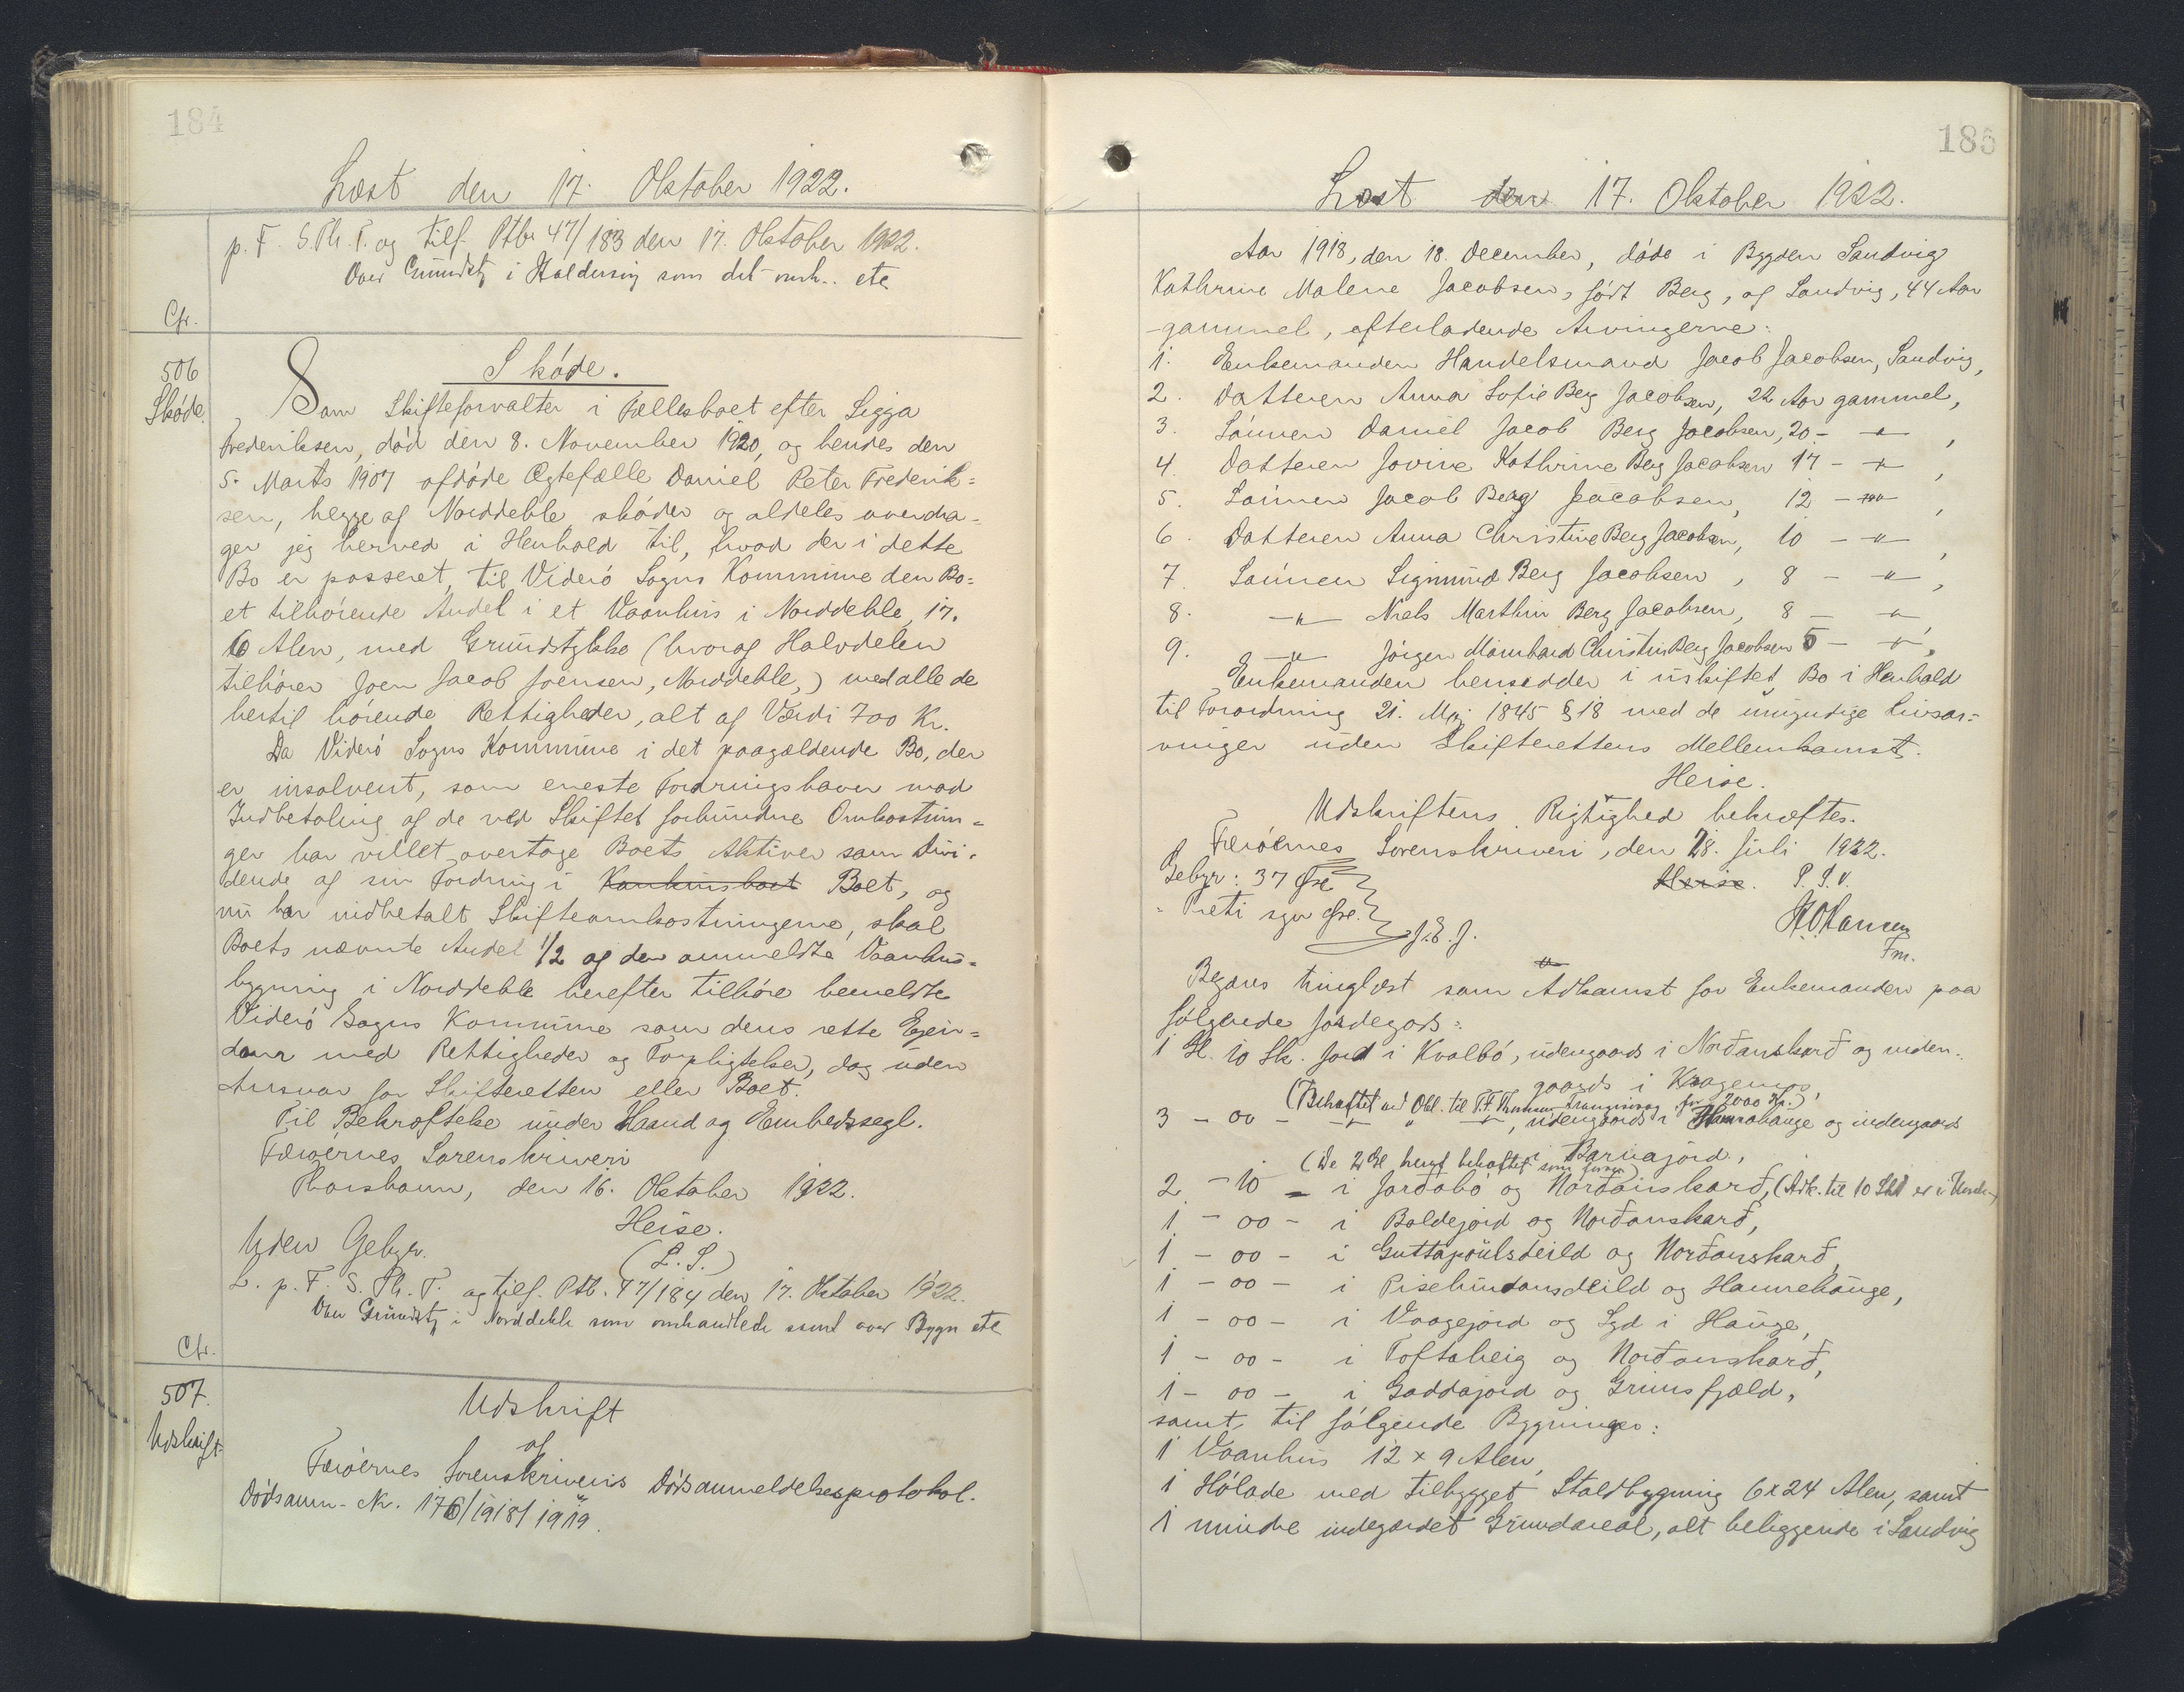 184
Læst den 17. Oktober 1922.
p. F. S. Th. T. og tilf. Ptb. 47/183 den 17. Oktober 1922.
Over Grundst. i Haldersvig som det omh. etc
Cfr.
506
Skøde.
Skøde.
Som Skifteforvalter i Fællesboet efter Sigga
Frederiksen, død den 8. November 1920, og hendes den
5. Marts 1907 afdøde Ægtefælle Daniel Peter Frederik=
sen, begge af Norddeble skøder og aldeles overdra=
ger jeg herved i Henhold til, hvad der i dette
Bo er passeret, til Viderø Sogns Kommune den Bo=
et tilhørende Andel i et Vaanhus i Norddeble, 17.
6 Alen, med Grundstykke (hvoraf Halvdelen
tilhører Joen Jacob Joensen, Norddeble,) med alle de
hertil hørende Rettigheder, alt af Værdi 700 Kr.
Da Viderø Sogns Kommune i det paagældende Bo, der
er insolvent, som eneste Fordringshaver mod
Indbetaling af de ved Skiftet forbundne Omkostnin=
ger har villet overtage Boets Aktiver som Divi=
dende af sin Fordring i Konkursboet Boet, og
nu har indbetalt Skifteomkostningerne, skal
Boets nævnte Andel 1/2 af den anmeldte Vaanhus=
bygning i Norddeble herefter tilhøre bemeldte
Viderø Sogns Kommune som dens rette Ejen=
dom med Rettigheder og Forpligtelser, dog uden
Ansvar for Skifteretten eller Boet.
Til Bekræftelse under Haand og Embedssegl.
Færøernes Sorenskriveri
Thorshavn, den 16. Oktober 1922.
Heise.
(L. S.)
Uden Gebyr.
L. p. F. S. Th. T. og tilf. Ptb. 47/184 den 17. Oktober 1922.
Over Grundst. i Norddeble som omhandlede samt over Bygn etc
Cfr.
507.
Udskrift.
Udskrift
af
Færøernes Sorenskriveris Dødsanmeldelsesprotokol.
Dødsanm. Nr. 176/1918/1919.
185
Læst den 17. Oktober 1922.
Aar 1918, den 18. December, døde i Bygden Sandvig
Kathrine Malene Jacobsen, født Berg, af Sandvig, 44 Aar
gammel, efterladende Arvingerne:
1. Enkemanden Handelsmand Jacob Jacobsen, Sandvig,
2. Datteren Anna Sofie Berg Jacobsen, 22 Aar gammel,
3. Sønnen Daniel Jacob Berg Jacobsen, 20 - " - ,
4. Datteren Jovine Kathrine Berg Jacobsen 17 - " - ,
5. Sønnen Jacob Berg Jacobsen, 12 - " - ,
6. Datteren Anna Christine Berg Jacobsen, 10 - " - ,
7. Sønnen Sigmund Berg Jacobsen, 8 - " - ,
8. - " - Niels Marthin Berg Jacobsen, 8 - " - ,
9. - " - Jørgen Christin Berg Jacobsen 5 - " - ,
Enkemanden hensidder i uskiftet Bo i Henhold
til Forordning 21. Maj 1845 § 18 med de umyndige Livsar=
vinger uden Skifterettens Mellemkomst.
Heise.
Udskriftens Rigtighed bekræftes.
Færøernes Sorenskriveri, den 28. Juli 1922.
Gebyr: 37 Øre
Heise. P. S. V.
Treti syv Øre.
J.E.J.
H. O. Hansen
Fm.
Begæres tinglæst som Adkomst for Enkemanden paa
følgende Jordegods:
1 Gl. 10 Sk. Jord i Kvalbø, udengaards i Norðanskarð og inden=
gaards i Kragemos,
(Behæftet ved Obl. til T.F. Thomsen Trangisvaag for 2000 Kr.)
3 - 00 - " - " - , udengaards i Hamrahauge og indengaards
i Barnajørd,
(De 2 Gl heraf behæftet som foran)
2 - 10 - i Jordabø og Norðanskarð, (Adk. til 10 Sk er i Uorden)
1 - 00 - i Boldejord og Norðanskarð,
1 - 00 - i Guttapoulsdeild og Norðanskarð,
1 - 00 - i Pisehundansdeild og Hamrehauge,
1 - 00 - i Vaagejord og Syd i Hauge,
1 - 00 - i Toftaheig og Norðanskarð,
1 - 00 - i Gaddajord og Grimsfjæld,
samt til følgende Bygninger:
1 Vaanhus 12 x 9 Alen,
1 Hølade med tilbygget Staldbygning 6 x 24 Alen, samt
1 mindre indegærdet Grundareal, alt beliggende i Sandvig